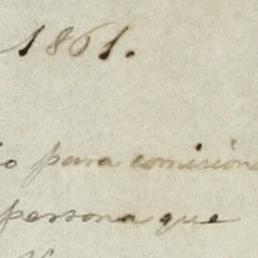 1861.
para comision
persona que